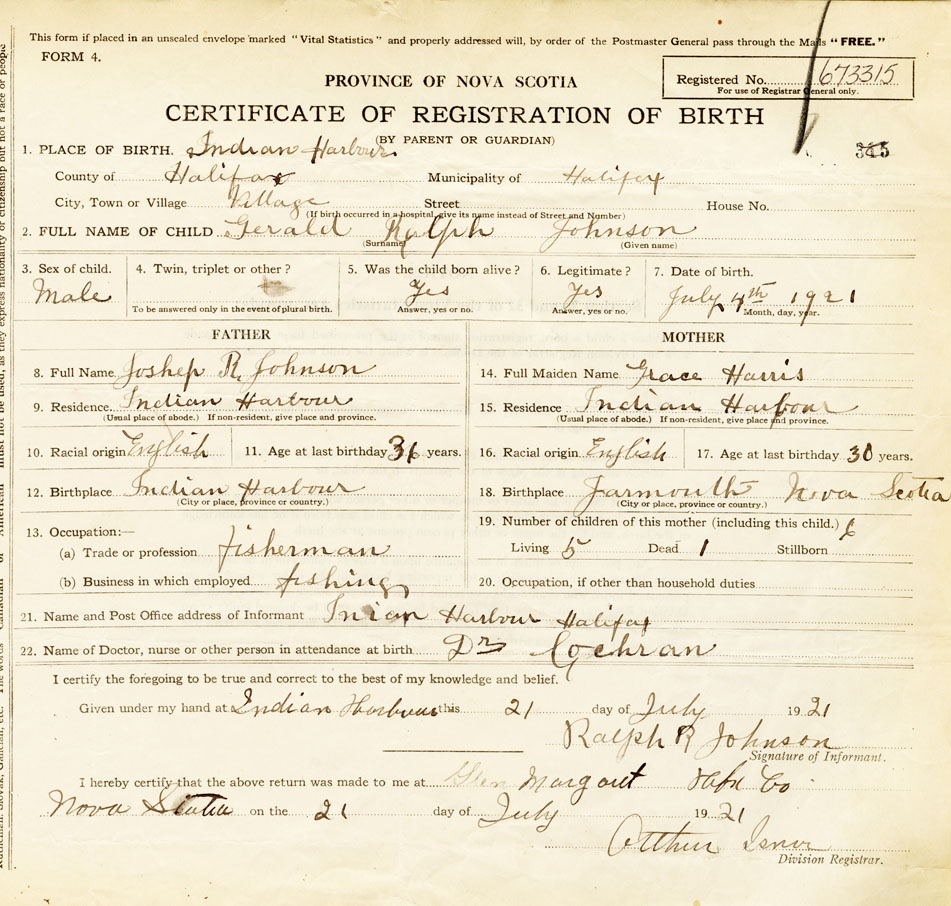 This form if placed in an unsealed envelope marked "Vital Statistics" and properly addressed will, by order of the Postmaster General pass through the Mails "FREE."
FORM 4.
Registered No. 673315
For use of Registrar General only.
PROVINCE OF NOVA SCOTIA
CERTIFICATE OF REGISTRATION OF BIRTH
(BY PARENT OR GUARDIAN)
345
1. PLACE OF BIRTH. Indian Harbour
County of Halifax Municipality of Halifax
City, Town or Village Village Street House No.
(If birth occurred in a hospital, give its name instead of Street and Number)
2. FULL NAME OF CHILD Gerald Ralph Johnson
(Surname) (Given name)
3. Sex of child. 4. Twin, triplet or other? 5. Was the child born alive? 6. Legitimate? 7. Date of birth.
Male Yes Yes July 4th 1921
To be answered only in the event of plural birth. Answer, yes or no. Answer, yes or no. Month, day, year.
FATHER MOTHER
8. Full Name Joshep R Johnson 14. Full Maiden Name Grace Harris
9. Residence. Indian Harbour 15. Residence Indian Harbour
(Usual place of abode.) If non-resident, give place and province. (Usual place of abode.) If non-resident, give place and province.
10. Racial origin English 11. Age at last birthday 36 years. 16. Racial origin English 17. Age at last birthday 30 years.
12. Birthplace Indian Harbour 18. Birthplace Jarmouth Nova Scotia
(City or place, province or country.) (City or place, province or country.)
13. Occupation:— 19. Number of children of this mother (including this child.) 6
(a) Trade or profession fisherman Living 5 Dead 1 Stillborn
(b) Business in which employed fishing 20. Occupation, if other than household duties
21. Name and Post Office address of Informant Inian Harbour Halifax
22. Name of Doctor, nurse or other person in attendance at birth Dr Cochran
I certify the foregoing to be true and correct to the best of my knowledge and belief.
Given under my hand at Indian Harbour this 21 day of July 1921
Ralph R Johnson
Signature of Informant.
I hereby certify that the above return was made to me at Glen Margaret Hfx Co
Nova Scotia on the 21 day of July 1921
Arthur Isnor
Division Registrar.